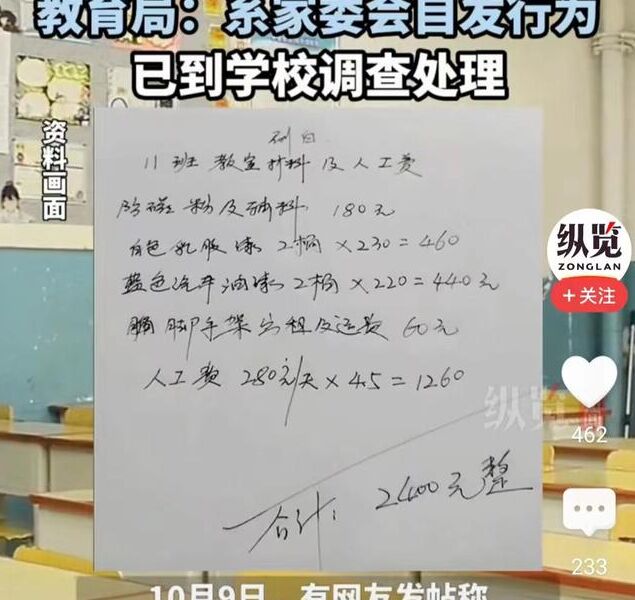 教育局：系家委会自发行为
已到学校调查处理
资料画面
11班 教室材料及人工费
及辅料 180元
白色乳胶漆 2桶 ×230=460
蓝色汽车油漆 2桶 ×220=440元
脚手架 租及运费 60元
人工费 280元/天 ×4.5=1260
合计: 2400元整
纵览
ZONGLAN
+关注
纵览
462
233
10月9日，有网友发帖称